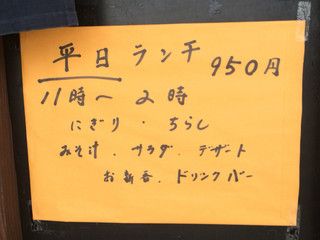 平日ランチ 950円
11時〜2時
にぎり・ちらし
みそ汁.サラダ.デザート
お新香.ドリンクバー